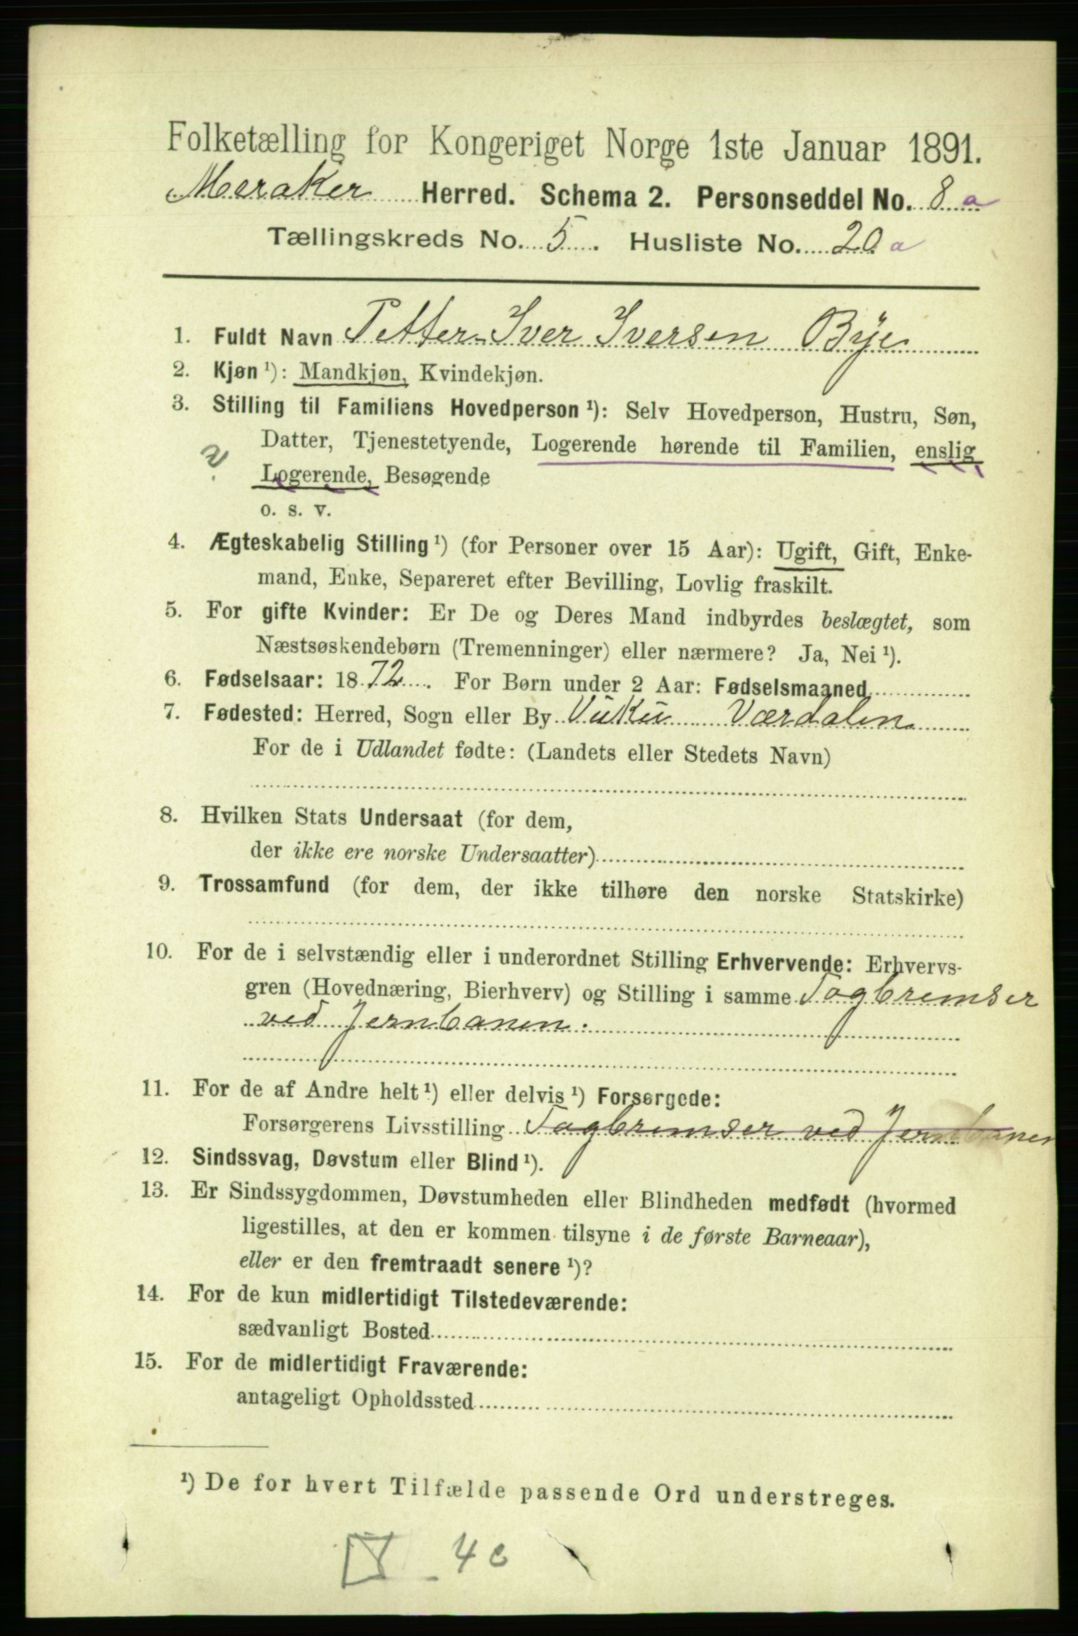 Folketælling for Kongeriget Norge 1ste Januar 1891.
Meraker Herred. Schema 2. Personseddel No. 8 a
Tællingskreds No. 5. Husliste No. 20 a
1. Fuldt Navn Petter Iver Iversen Bye
2. Kjøn ¹): Mandkjøn, Kvindekjøn.
3. Stilling til Familiens Hovedperson ¹): Selv Hovedperson, Hustru, Søn,
Datter, Tjenestetyende, Logerende hørende til Familien, enslig
? Logerende, Besøgende
o. s. v.
4. Ægteskabelig Stilling ¹) (for Personer over 15 Aar): Ugift, Gift, Enke-
mand, Enke, Separeret efter Bevilling, Lovlig fraskilt.
5. For gifte Kvinder: Er De og Deres Mand indbyrdes beslægtet, som
Næstsøskendebørn (Tremenninger) eller nærmere? Ja, Nei ¹).
6. Fødselsaar: 1872. For Børn under 2 Aar: Fødselsmaaned
7. Fødested: Herred, Sogn eller By Vuku Værdalen
For de i Udlandet fødte: (Landets eller Stedets Navn)
8. Hvilken Stats Undersaat (for dem,
der ikke ere norske Undersaatter)
9. Trossamfund (for dem, der ikke tilhøre den norske Statskirke)
10. For de i selvstændig eller i underordnet Stilling Erhvervende: Erhvervs-
gren (Hovednæring, Bierhverv) og Stilling i samme Togbremser
ved Jernbanen.
11. For de af Andre helt ¹) eller delvis ¹) Forsørgede:
Forsørgerens Livsstilling Togbremser ved Jernbanen
12. Sindssvag, Døvstum eller Blind ¹).
13. Er Sindssygdommen, Døvstumheden eller Blindheden medfødt (hvormed
ligestilles, at den er kommen tilsyne i de første Barneaar),
eller er den fremtraadt senere ¹)?
14. For de kun midlertidigt Tilstedeværende:
sædvanligt Bosted
15. For de midlertidigt Fraværende:
antageligt Opholdssted
¹) De for hvert Tilfælde passende Ord understreges.
4 c